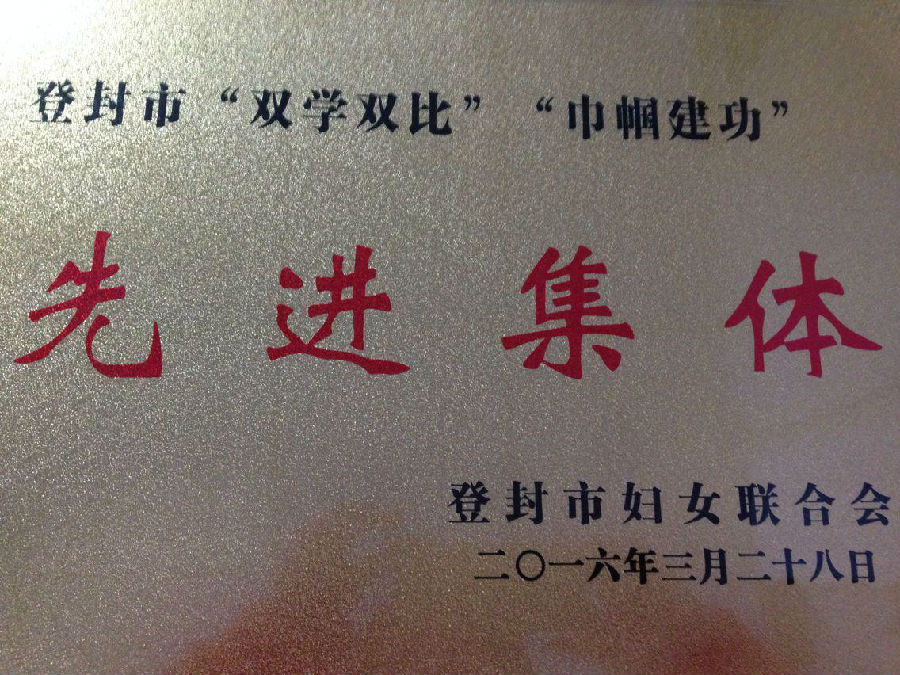 登封市“双学双比”“巾帼建功”
先进集体
登封市妇女联合会
二〇一六年三月二十八日